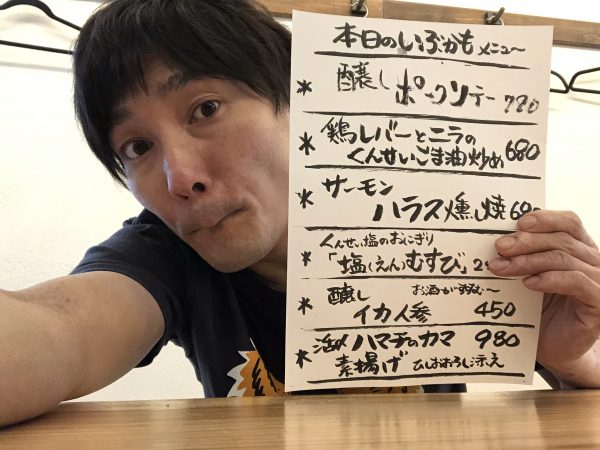 本日のいぶかもメニュ〜
* 醸し ポークソテー 780
* 鶏レバーとニラの
くんせいごま油炒め 680
* サーモン
ハラス燻し焼 680
くんせい塩のおにぎり
* 「塩(えん)むすび」2
醸し お酒がすすむ〜
* イカ人参 450
* 活〆ハマチのカマ 980
素揚げ ひしおおろし添え